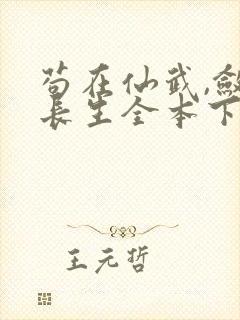 苟在仙武,敛
长生全本下
王元哲